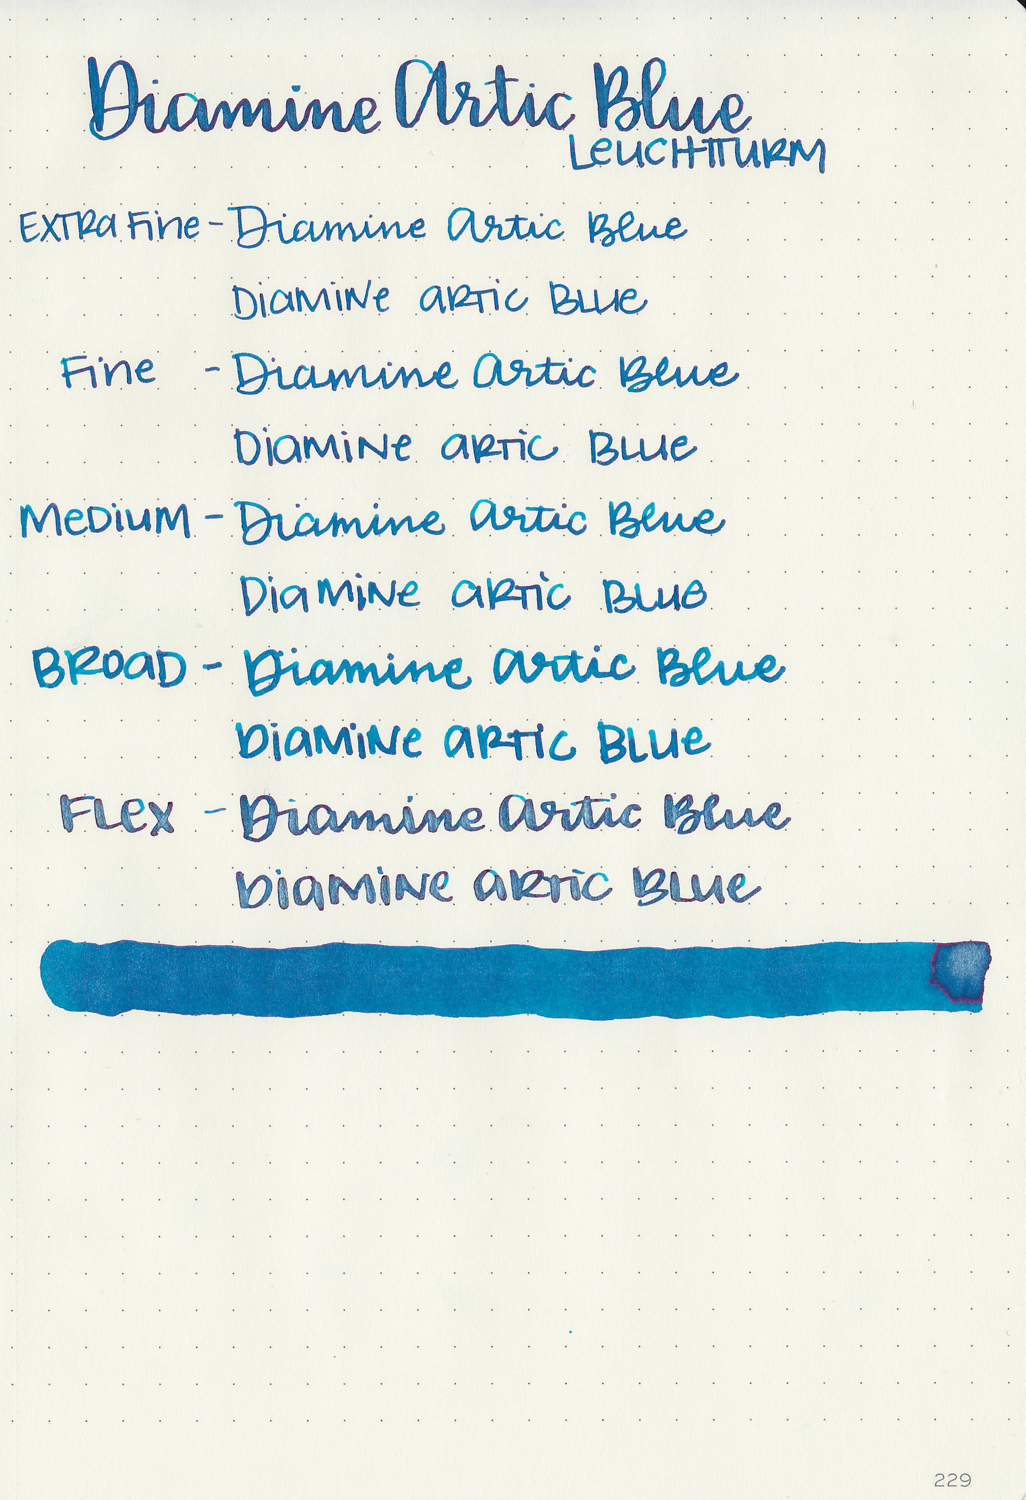 Diamine Artic Blue
Leuchtturm
Extra Fine - Diamine Artic Blue
Diamine Artic Blue
Fine - Diamine Artic Blue
Diamine Artic Blue
Medium - Diamine Artic Blue
Diamine Artic Blue
Broad - Diamine Artic Blue
Diamine Artic Blue
Flex - Diamine Artic Blue
Diamine Artic Blue
229